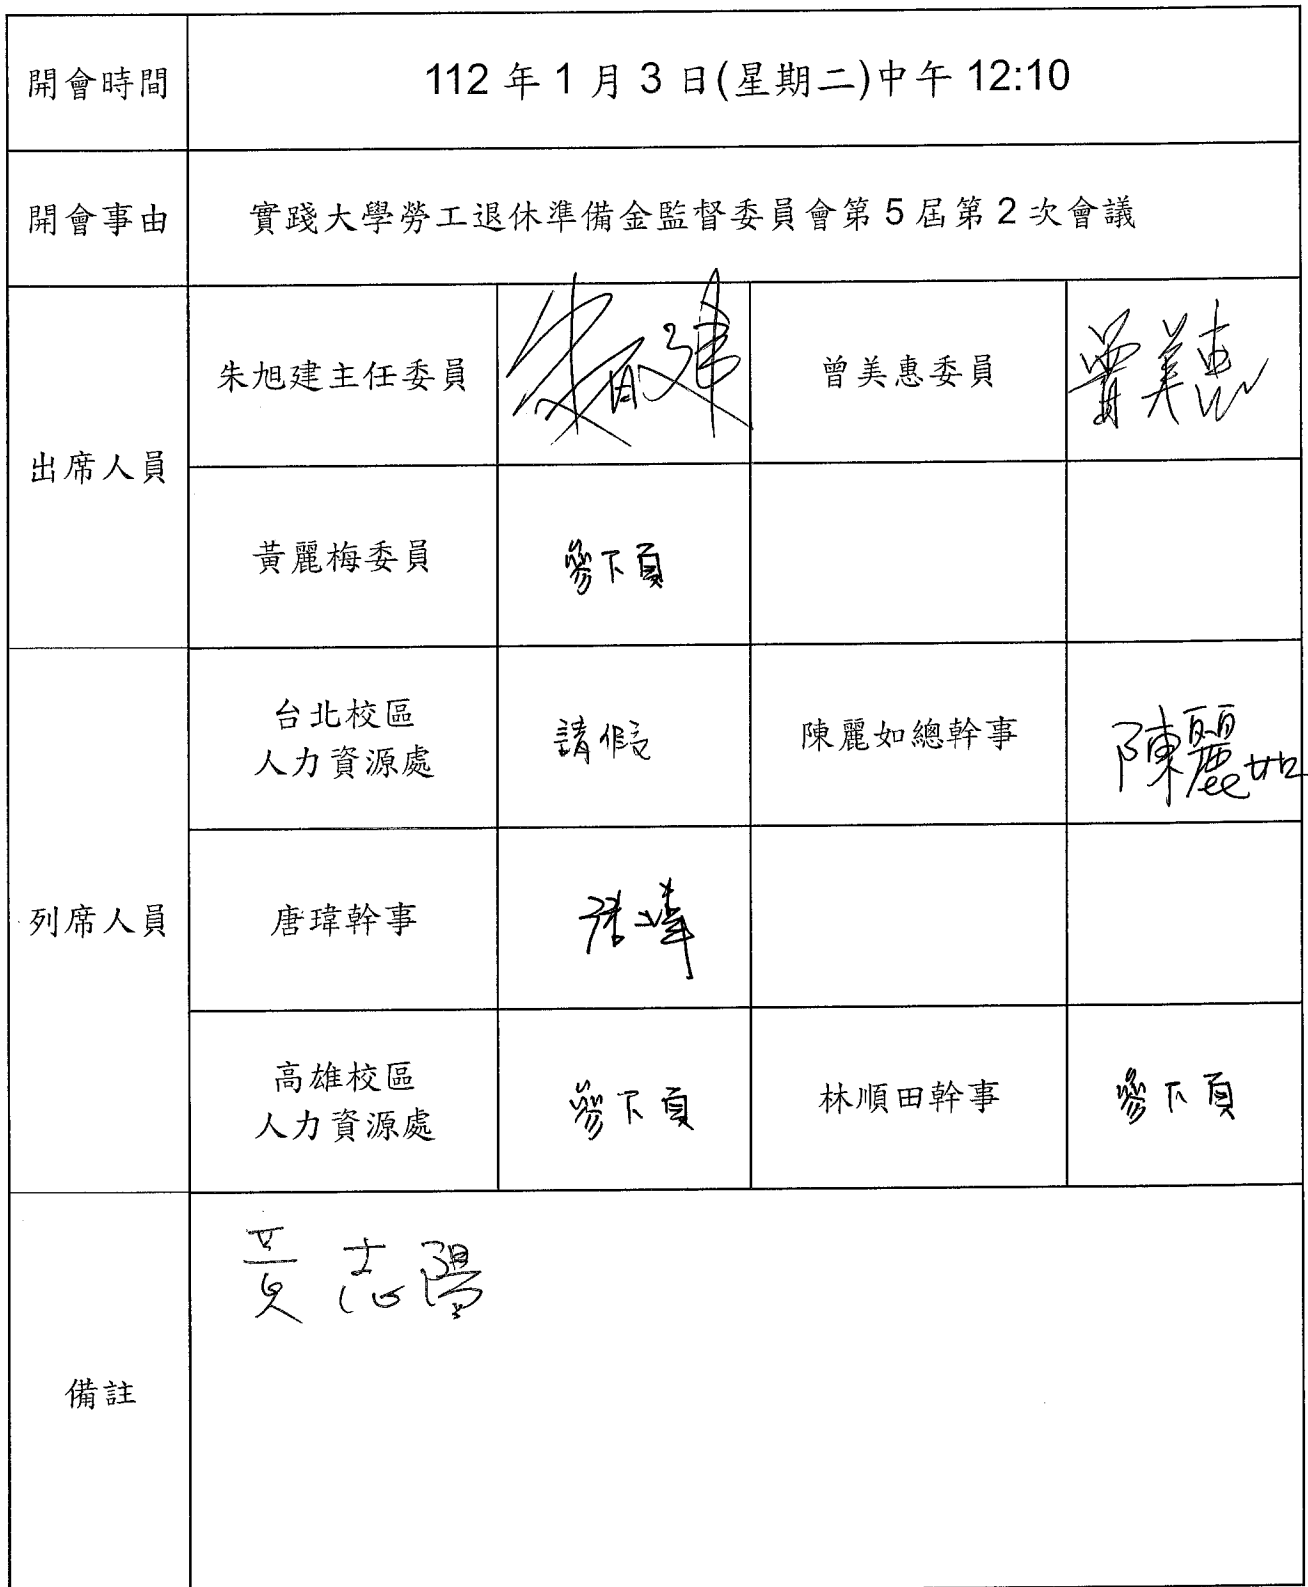 開會時間
112 年 1 月 3 日(星期二)中午 12:10
開會事由
實踐大學勞工退休準備金監督委員會第 5 屆第 2 次會議
出席人員
朱旭建主任委員
朱旭建
曾美惠委員
曾美惠
黃麗梅委員
參下頁
列席人員
台北校區
人力資源處
請假
陳麗如總幹事
陳麗如
唐瑋幹事
唐瑋
高雄校區
人力資源處
參下頁
林順田幹事
參下頁
備註
黃志陽